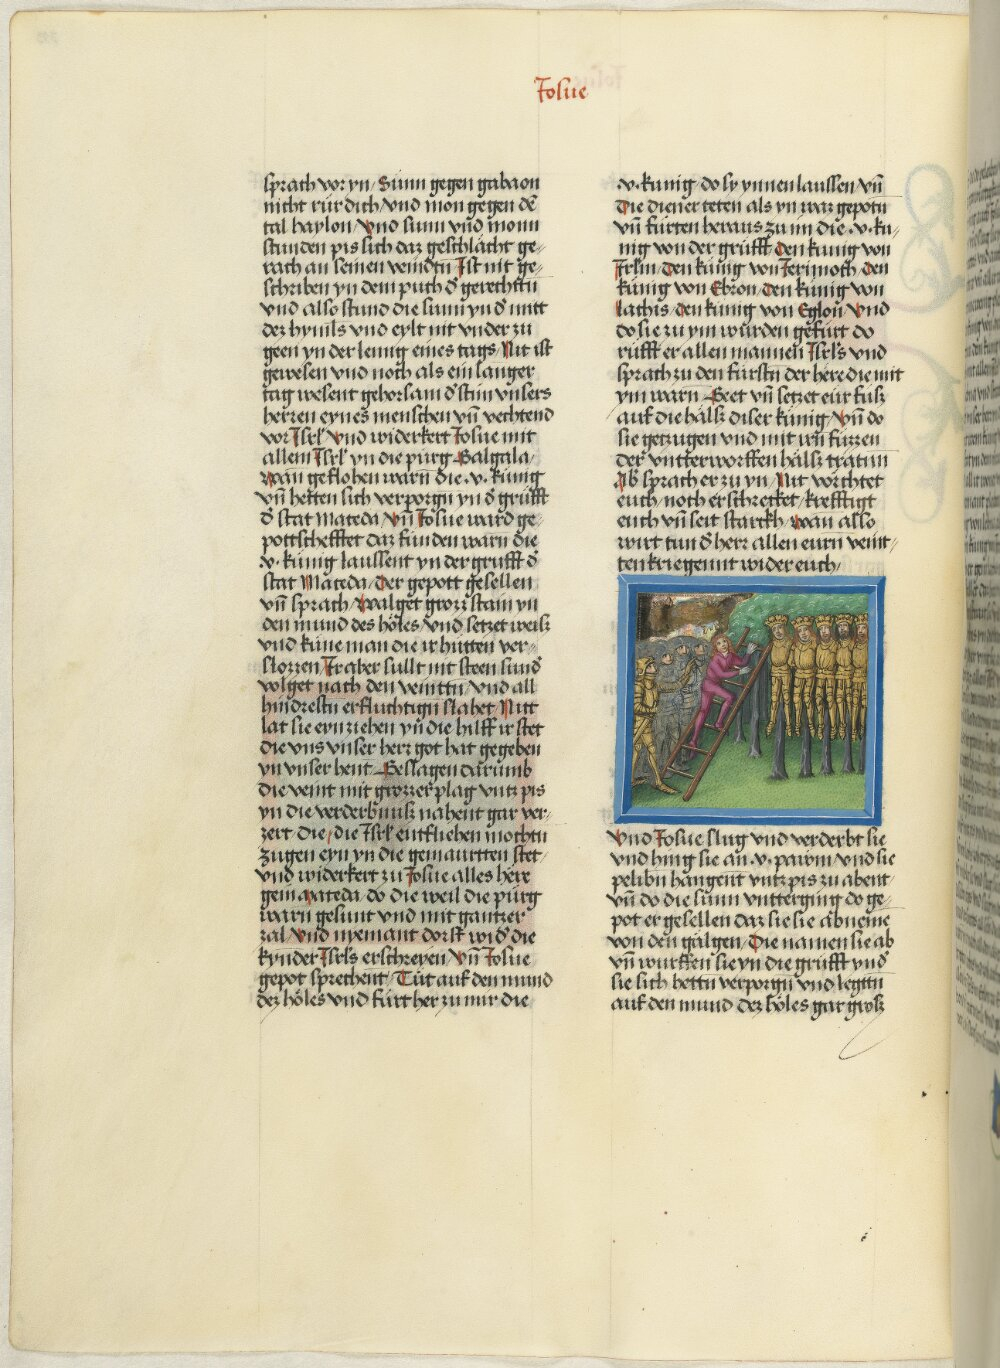 Josue
sprach vor yn / Sunn gegen gabaon
nicht rür dich / vnd mon gegen dē
tal haylon / Vnd sunn vnd monn
stunden pis sich daz geschlächt ge-
rach an seinen veindtn̄ Ist nit ge-
schriben yn dem puch d̕ gerechtn̄
vnd also stund die sunn yn d̕ mitt
dez hymls vnd eylt nit vnder zu
geen yn der leng eines tags / Nit ist
gewesen vnd noch als ein langer
tag wesent gehorsam d̕ stim vnsers
herren eynes menschen vn̄ vechtend
vor Isrl̕ Vnd widerkert Josue mit
allem Isrl̕ yn die purg Galgala /
Wan geflohen warn̄ die .v. künig
vn̄ hetten sich verporgn̄ yn d̕ grufft
d̕ stat Maceda / Vn̄ Josue ward ge-
pottschefftet daz funden warn̄ die
.v. künig laussent yn der grufft d̕
stat Maceda / Der gepott gesellen
vn̄ sprach / Walget groz stain yn
den mund des höles / vnd setzet weis
vnd küne man die ir hutten ver-
slozzen Ir aber sullt nit steen sund̕
volget nach den veintn̄ / vnd all
hindrestn̄ erfluchtign̄ slahet / Nitt
lat sie eynziehen yn̄ die hilff ir stet
die vns vnser herr got hat gegeben
yn vnser hent Geslagen darumb
die veint mit grozzer plag vntz pis
yn die verderbnuß nahent gar ver-
zert die / die Isrl̕ entfliehen mochtn̄
zugen eyn yn die gemaurtten stet /
Vnd widerkert zu Josue alles here
gem Maceda do die weil die purg
warn gesunt vnd mit gantzer
zal / Vnd nyemant dorst wid̕ die
kynder Isrl̕s erschreyen / Vn̄ Josue
gepot sprechent / Tut auf den mund
dez höles vnd fürt her zu mir die
.v. künig / do sy ynnen laussen / vn̄
Die diener teten als yn waz gepotn̄
vn̄ fürten heraus zu im die .v. ku-
nig von der grufft Den künig von
Jrl̕m / Den künig von Jerimoth / Den
künig von Ebron / Den künig von
Lachis / Den künig von Eglon / Vnd
do sie zu ym würden gefürt do
rüfft er allen mannen Isrl̕s vnd
sprach zu den fürstn̄ der here die mit
ym warn Geet vn̄ setzet eur fuß
auf die hälß diser künig / Vn̄ do
sie getzugen vnd mit irn̄ füzzen
der vntterworffen hälß tratnn
Ab sprach er zu yn / Nit vörchtet
euch / noch erschrecket / krefftigt
euch vn̄ seit starckh / Wan also
wirt tun d̕ herr allen eurn veint-
ten kriegennt wider euch /
Vnd Josue slug vnd verderbt sie
vnd hing sie an .v. pawm / vnd sie
pelibn̄ hangent vntz pis zu abent /
vn̄ do die sunn vntterging do ge-
pot er gesellen daz sie sie abneme
von den galgen / Die namen sie ab
vn̄ wurffen sie yn die grufft ynd̕
sie sich hettn̄ verporgn̄ vnd legttn
auf den mund dez höles gar groß